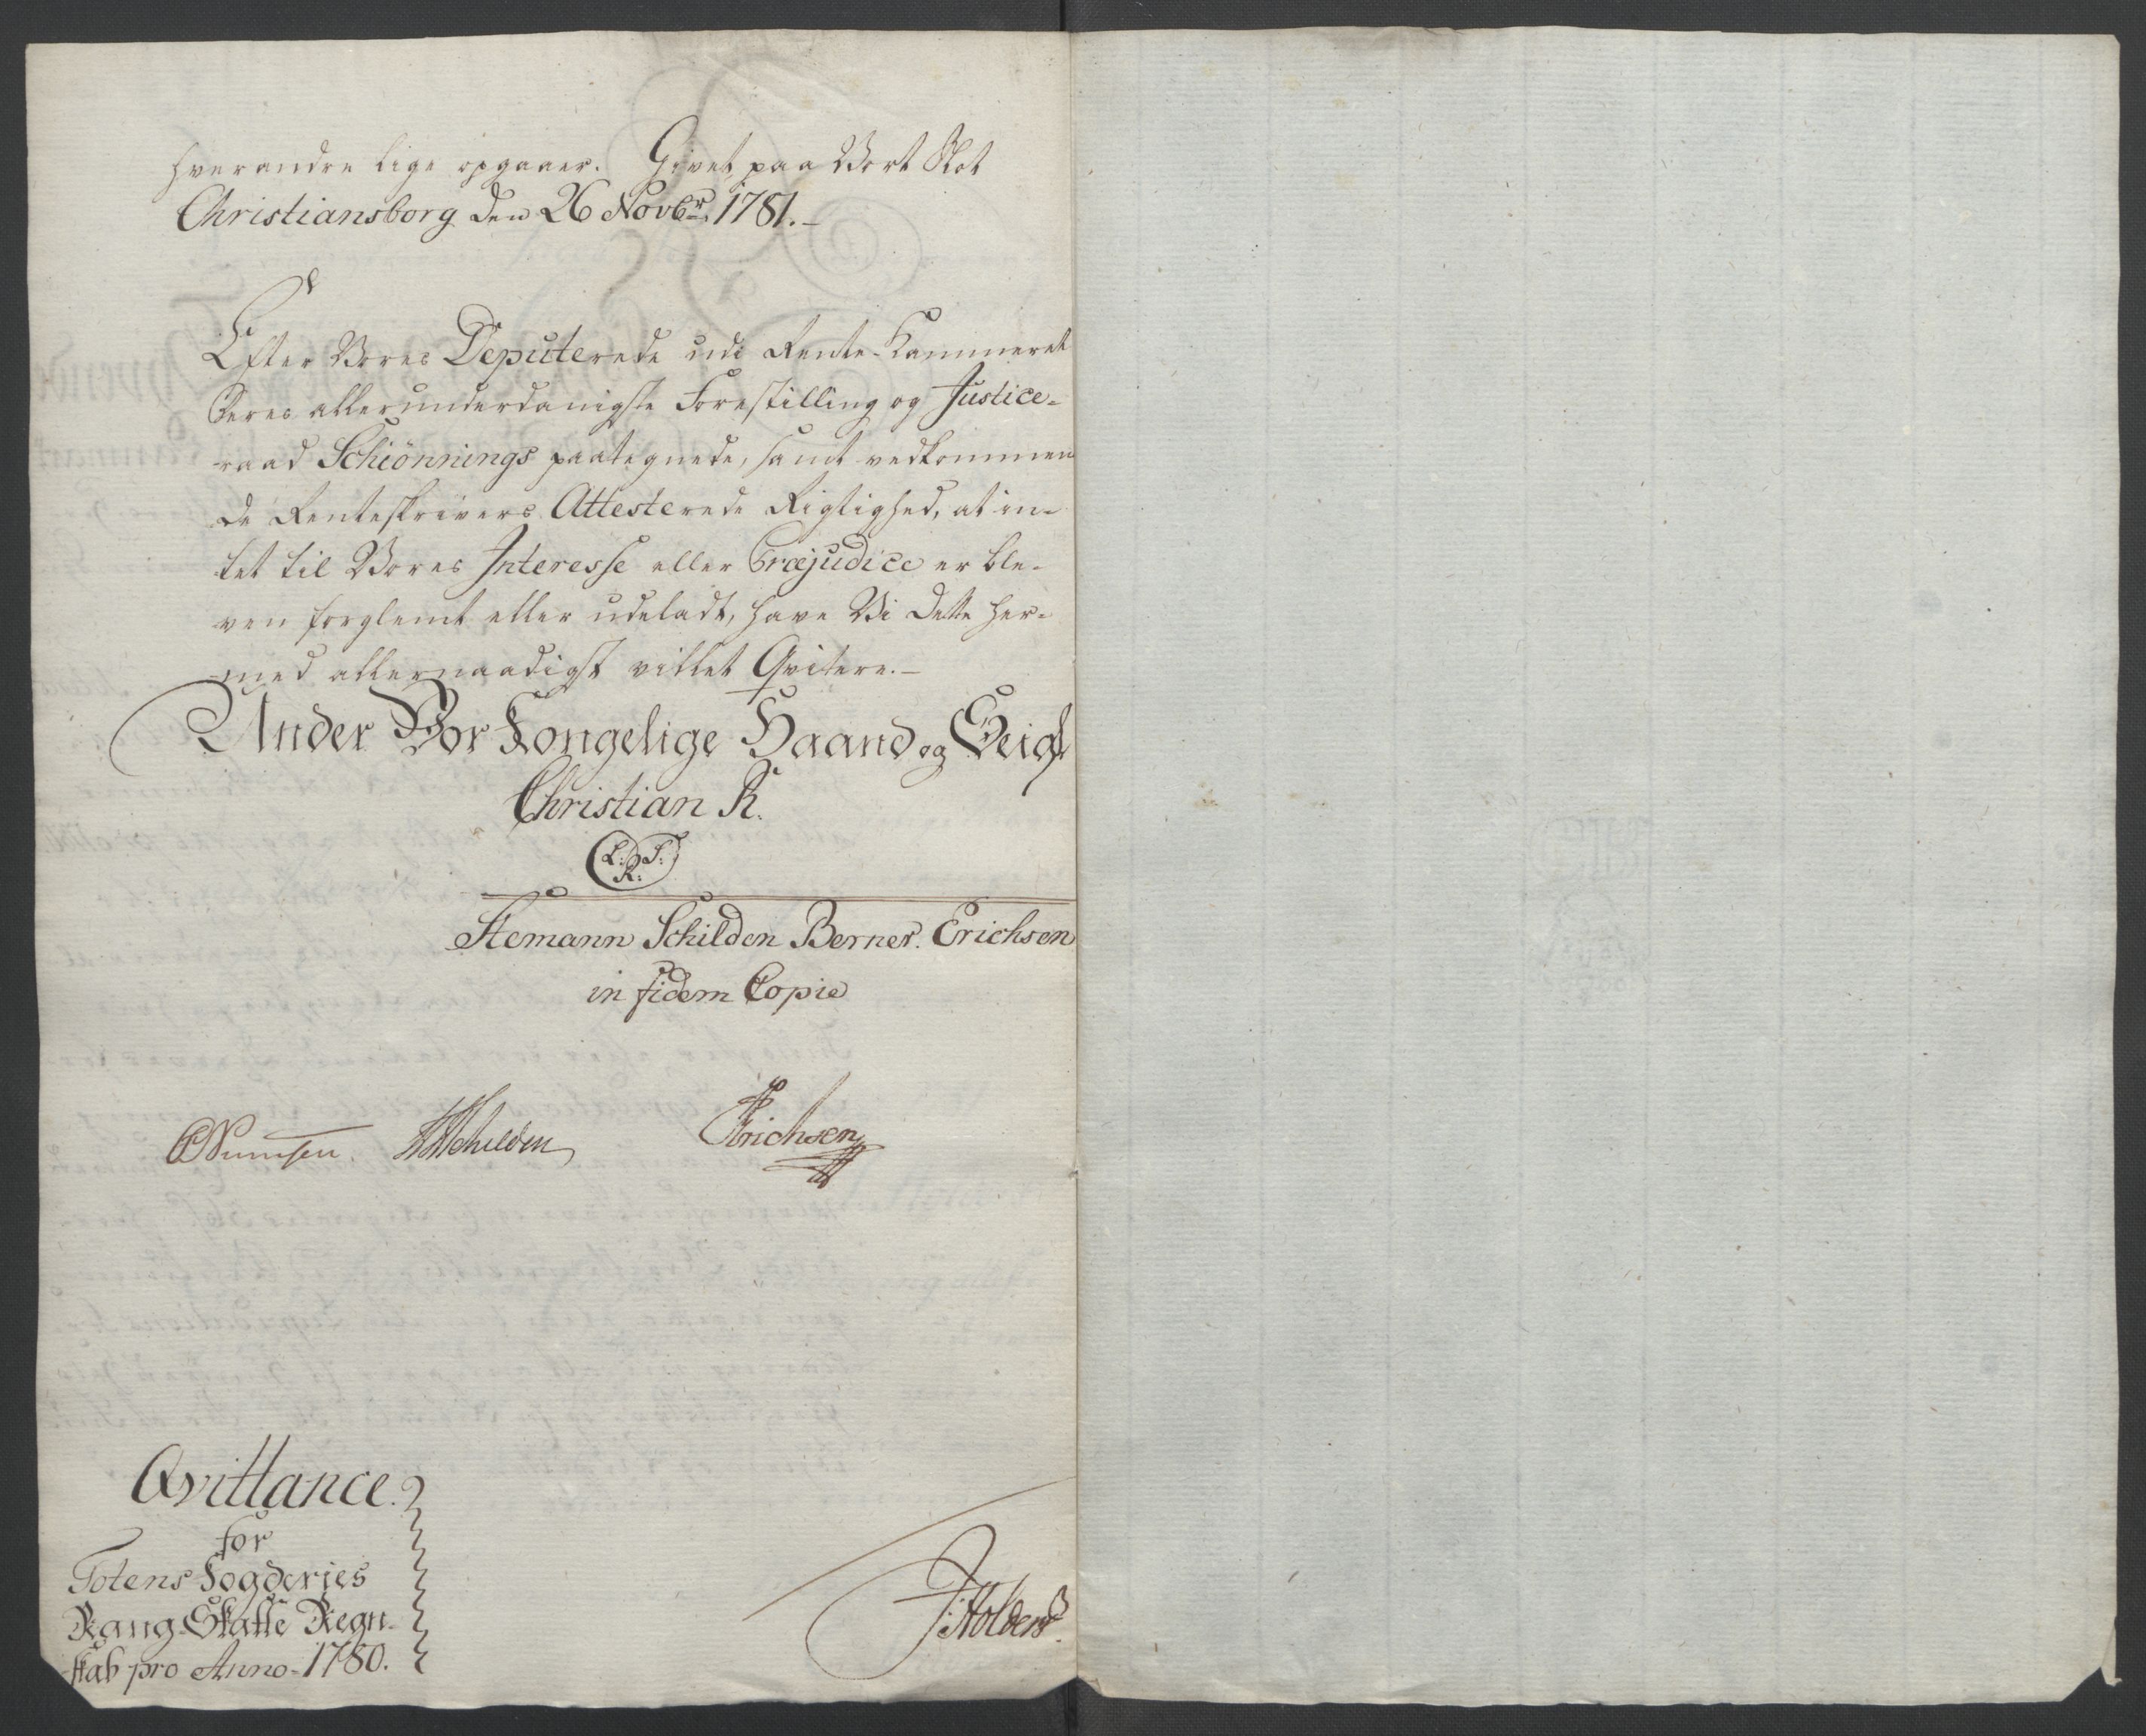 hverandre lige opgaaer. Givet paa Vort Slot
Christiansborg den 26 Novbr. 1781.
Efter Vores Deputerede udi Rente-Kammeret
Deres allerunderdanigste Forestilling og Justice-
raad Schiönnings paategnede, samt vedkommen
de Renteskrivers Attesterede Rigtighed, at in-
tet til Vores Interesse eller Præjudice er ble-
ven forglemt eller udeladt, have Vi dette her-
med allernaadigst villet Qvitere.
Under Vor Kongelige Haand og Seigl
Christian R.
L: S:
R:
Stemann Schilden Berner. Erichsen
in fidem Copie
Numsen. Schilden Erichsen
Qvittance.
for
Totens Fogderies
Rang-Skatte Regn-
skab pro Anno-1780.
J: Holdert.